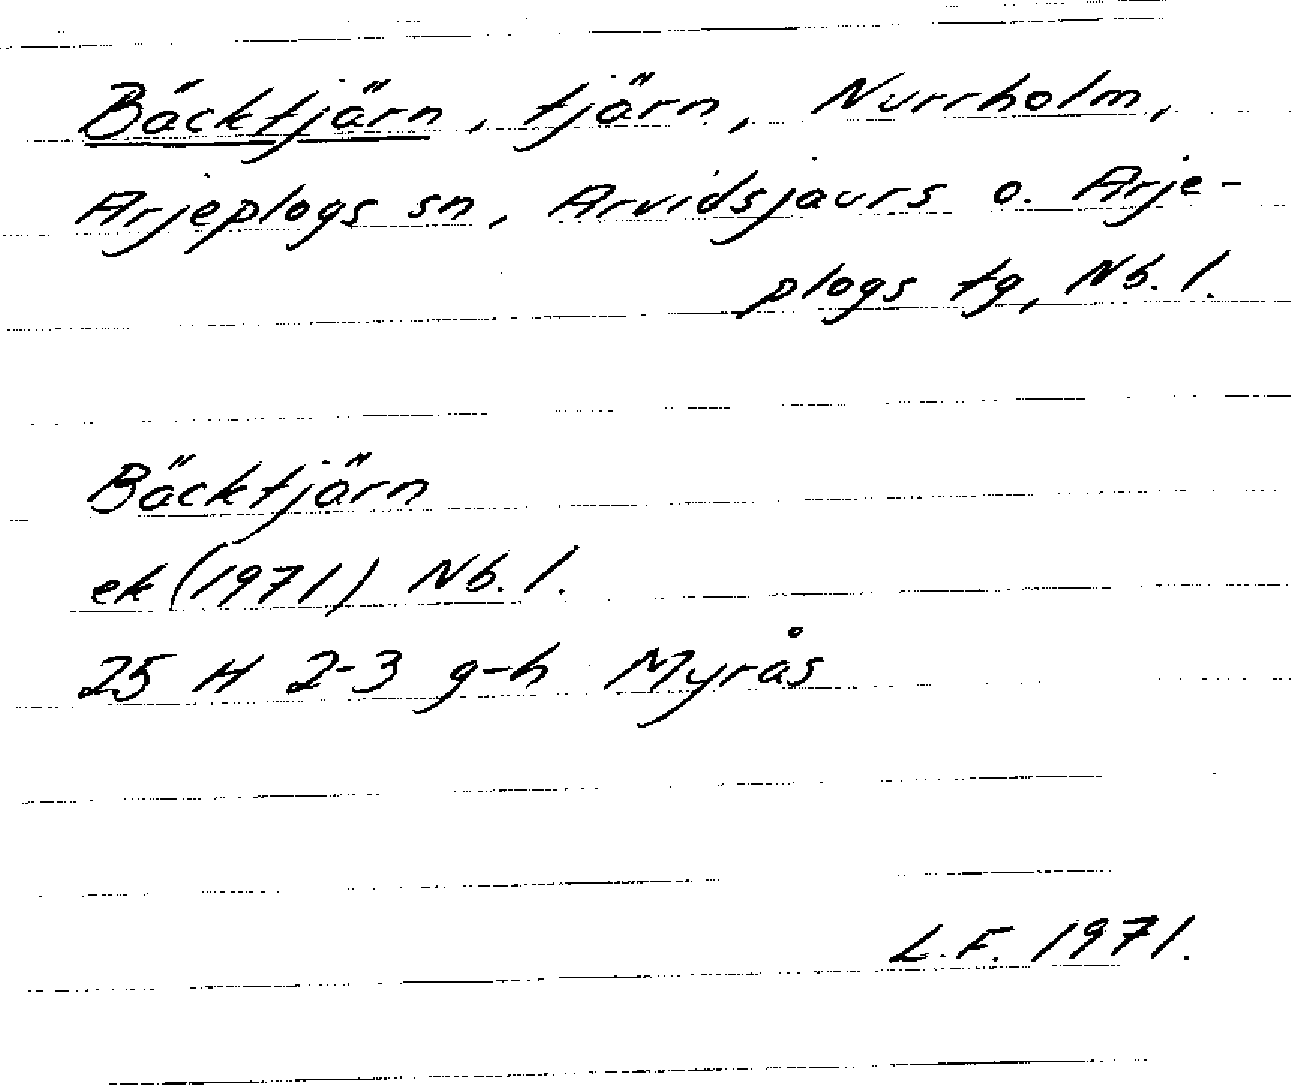 Bäcktjärn, tjärn, Nurrholm,
Arjeplogs sn, Arvidsjaurs o. Arje-
plogs tg, Nb. l.
Bäcktjärn
ek (1971) Nb. l.
25 H 2-3 g-h Myrås
L.F. 1971.